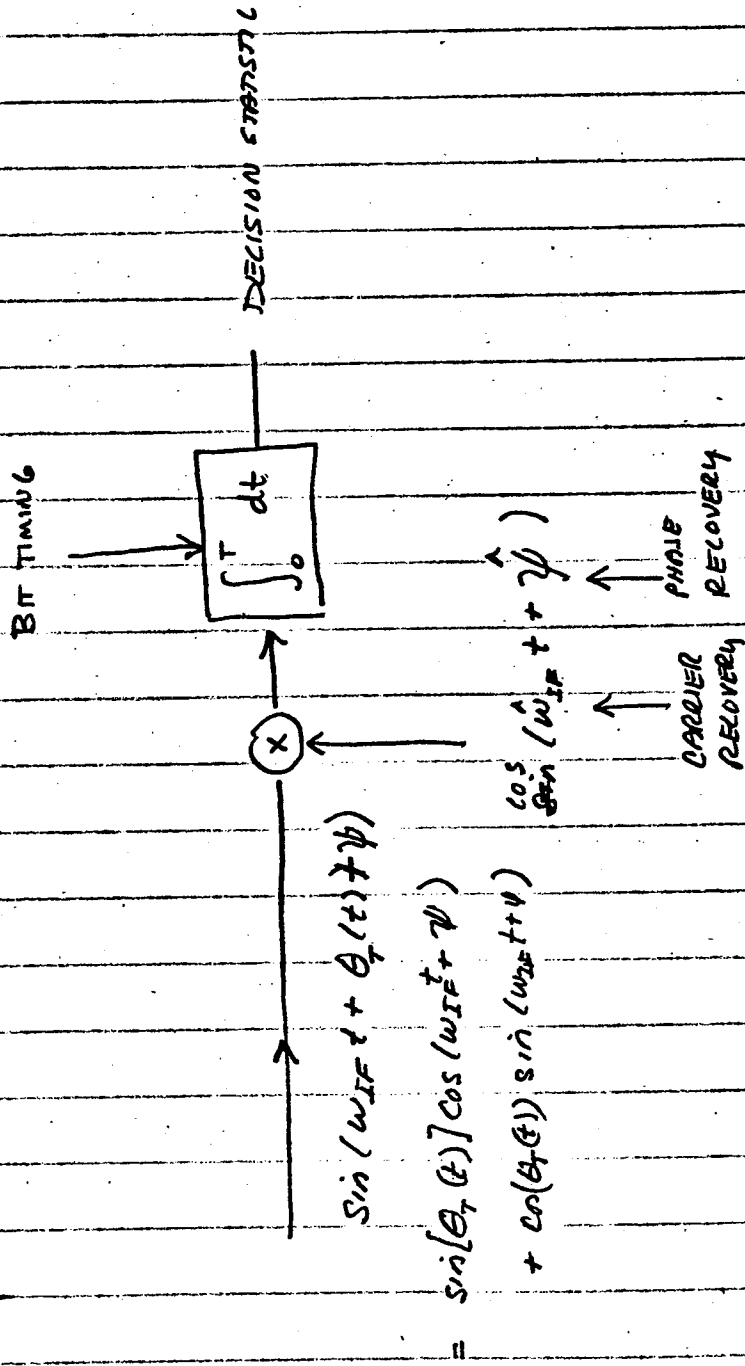 BIT TIMING
∫₀ᵀ dt
DECISION STATISTIC
X
sin (ω_IF t + θ_T (t) + ψ)
= sin[θ_T (t)] cos (ω_IF t + ψ)
+ cos(θ_T(t)) sin (ω_IF t + ψ)
cos (ω̂_IF t + ψ̂)
CARRIER RECOVERY
PHASE RECOVERY